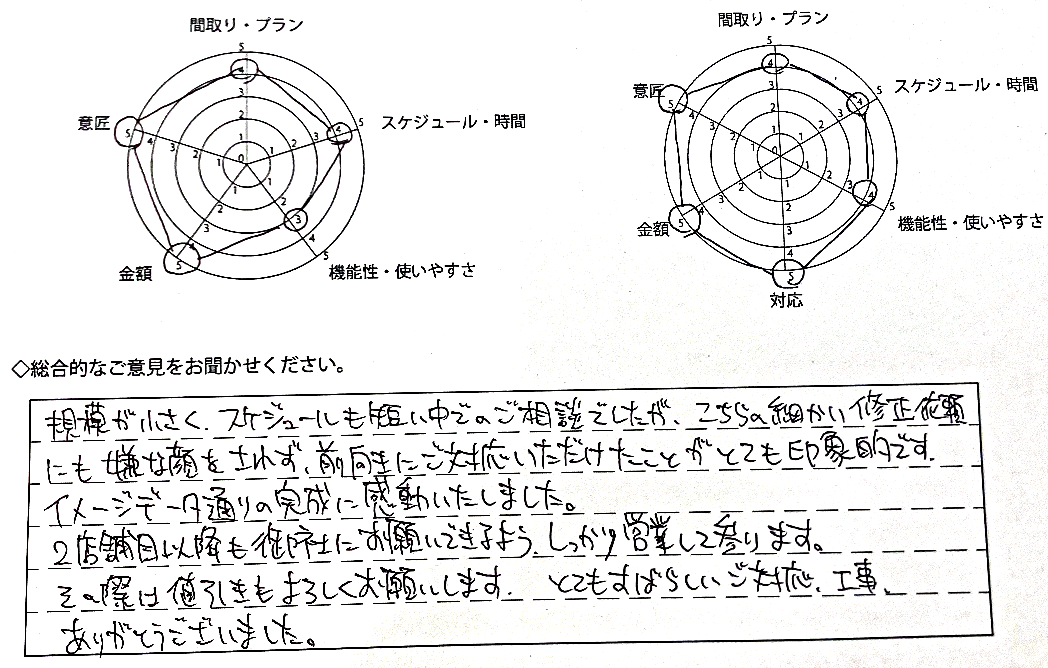 間取り・プラン
5
4
3
2
1
0
意匠
5 4 3 2 1
スケジュール・時間
1 2 3 4 5
金額
5 4 3 2 1
機能性・使いやすさ
1 2 3 4 5
間取り・プラン
5
4
3
2
1
0
意匠
5 4 3 2 1
スケジュール・時間
1 2 3 4 5
金額
5 4 3 2 1
機能性・使いやすさ
1 2 3 4 5
1
2
3
4
5
対応
◇総合的なご意見をお聞かせください。
規模が小さく、スケジュールも短い中でのご相談でしたが、こちらの細かい修正依頼
にも嫌な顔をされず、前向きにご対応いただけたことがとても印象的です。
イメージデータ通りの完成に感動いたしました。
2店舗目以降も御社にお願いできるよう、しっかり営業して参ります。
その際は値引きもよろしくお願いします。 とてもすばらしいご対応、工事、
ありがとうございました。